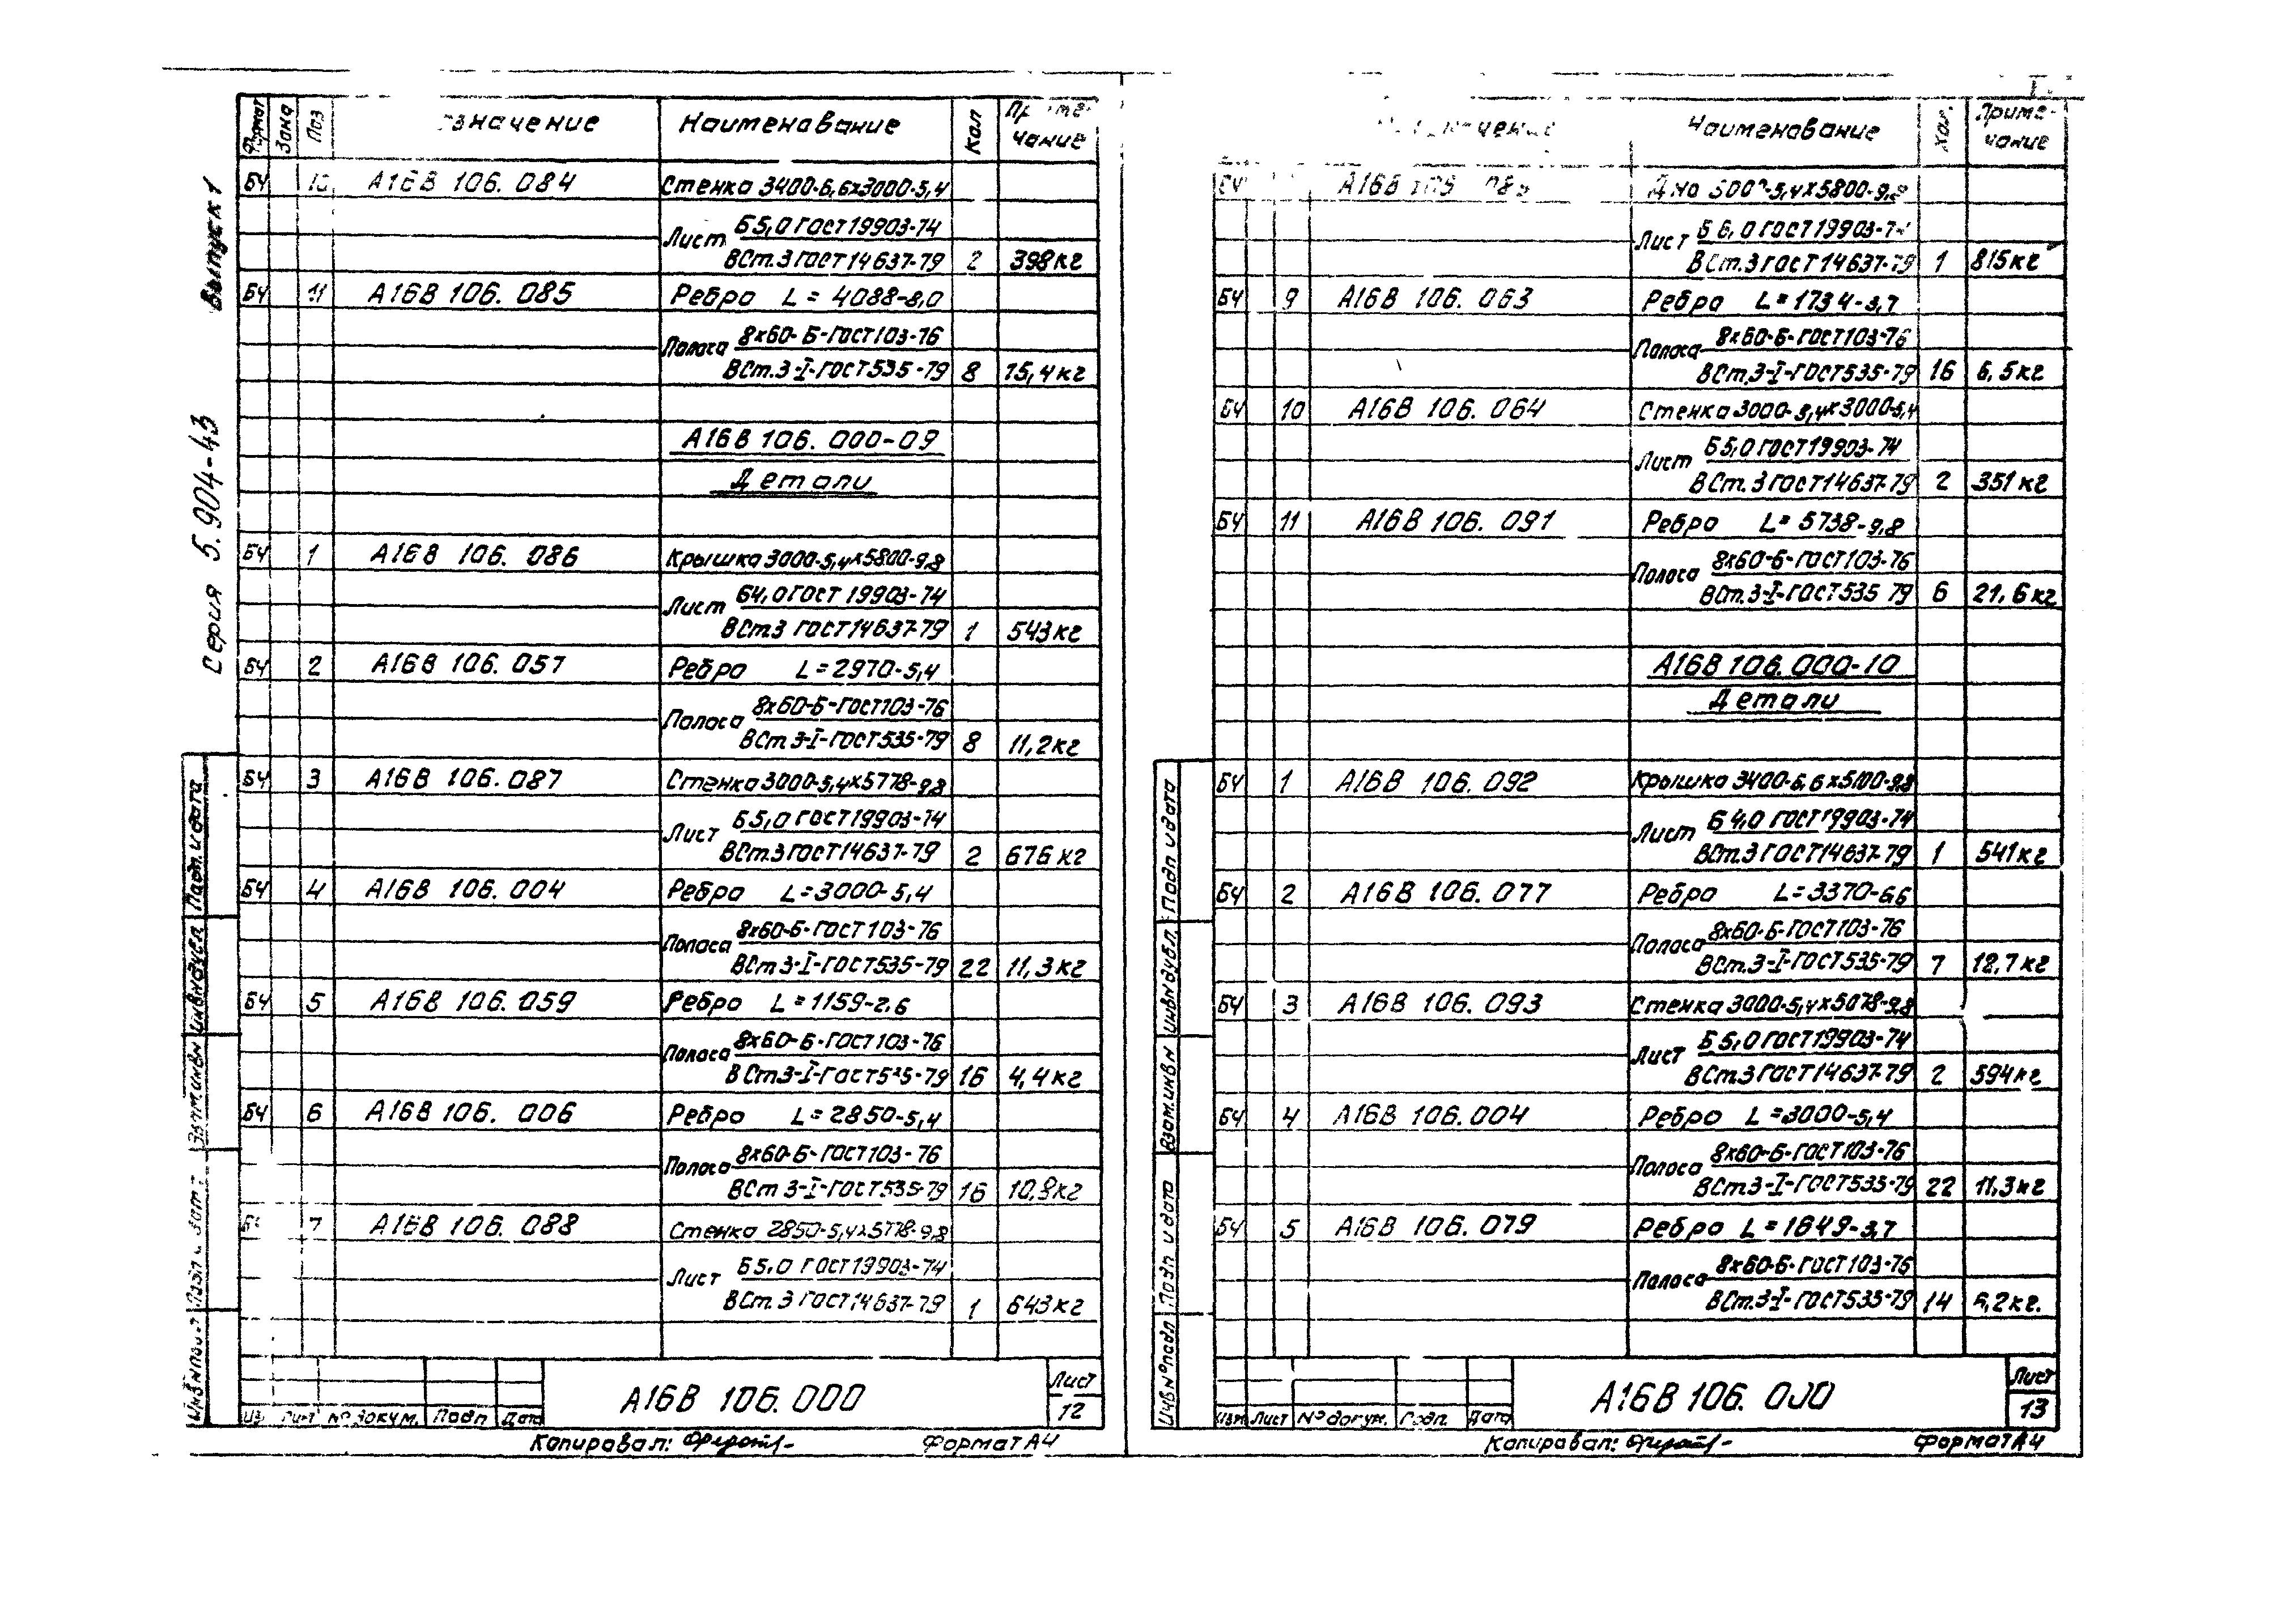 Серия 5.904-43 Выпуск 1
Формат Зона Поз Наименование Кол
чание
БЧ А16В 106.084 Стенка 3400-6,6х3000-5,4
Лист Б5,0 ГОСТ 19903-74
ВСт.3 ГОСТ 14637-79 2 398 кг
БЧ 11 А16В 106.085 Ребро L=4088-8,0
Полоса 8х60-Б-ГОСТ 103-76
ВСт.3-I-ГОСТ 535-79 8 15,4 кг
А16В 106.000-09
Детали
БЧ 1 А16В 106.086 Крышка 3000-5,4х5800-9,8
Лист Б4,0 ГОСТ 19903-74
ВСт3 ГОСТ 14637-79 1 543 кг
БЧ 2 А16В 106.057 Ребро L=2970-5,4
Полоса 8х60-Б-ГОСТ 103-76
ВСт 3-I-ГОСТ 535-79 8 11,2 кг
БЧ 3 А16В 106.087 Стенка 3000-5,4х5778-9,8
Лист Б5,0 ГОСТ 19903-74
ВСт.3 ГОСТ 14637-79 2 676 кг
БЧ 4 А16В 106.004 Ребро L=3000-5,4
Полоса 8х60-Б-ГОСТ 103-76
ВСт 3-I-ГОСТ 535-79 22 11,3 кг
БЧ 5 А16В 106.059 Ребро L=1159-2,6
Полоса 8х60-Б-ГОСТ 103-76
ВСт3-I-ГОСТ 535-79 16 4,4 кг
БЧ 6 А16В 106.006 Ребро L=2850-5,4
Полоса 8х60-Б-ГОСТ 103-76
ВСт 3-I-ГОСТ 535-79 16 10,8 кг
7 А16В 106.088 Стенка 2850-5,4х5778-9,8
Лист Б5,0 ГОСТ 19903-74
ВСт.3 ГОСТ 14637-79 1 643 кг
Подп. и дата
Инв № дубл
А16В 106.000 Лист
12
Лист № докум. Подп Дата
Копировал: Формат А4
Наименование Кол. Приме-
чание
А16В Дно 5,4х5800-9,8
Лист Б6,0 ГОСТ 19903-74
ВСт.3 ГОСТ 14637-79 1 815 кг
БЧ 9 А16В 106.063 Ребро L=1734-3,7
Полоса 8х60-Б-ГОСТ 103-76
ВСт.3-I-ГОСТ 535-79 16 6,5 кг
БЧ 10 А16В 106.064 Стенка 3000-5,4х3000-5,4
Лист Б5,0 ГОСТ 19903-74
ВСт.3 ГОСТ 14637-79 2 351 кг
БЧ 11 А16В 106.091 Ребро L=5738-9,8
Полоса 8х60-Б-ГОСТ 103-76
ВСт.3-I-ГОСТ 535 79 6 21,6 кг
А16В 106.000-10
Детали
БЧ 1 А16В 106.092 Крышка 3400-6,6х5100-9,8
Лист Б4,0 ГОСТ 19903-74
ВСт.3 ГОСТ 14637-79 1 541 кг
БЧ 2 А16В 106.077 Ребро L=3370-6,6
Полоса 8х60-Б-ГОСТ 103-76
ВСт.3-I-ГОСТ 535-79 7 12,7 кг
БЧ 3 А16В 106.093 Стенка 3000-5,4х5078-9,8
Лист Б5,0 ГОСТ 19903-74
ВСт.3 ГОСТ 14637-79 2 594 кг
БЧ 4 А16В 106.004 Ребро L=3000-5,4
Полоса 8х60-Б-ГОСТ 103-76
ВСт3-I-ГОСТ 535-79 22 11,3 кг
БЧ 5 А16В 106.079 Ребро L=1649-3,7
Полоса 8х60-Б-ГОСТ 103-76
ВСт.3-I-ГОСТ 535-79 14 6,2 кг.
Подп и дата
Инв № дубл.
Взам. инв №
Подп и дата
Инв № подл
А16В 106.000 Лист
13
Изм Лист № докум. Подп. Дата
Копировал: Формат А4